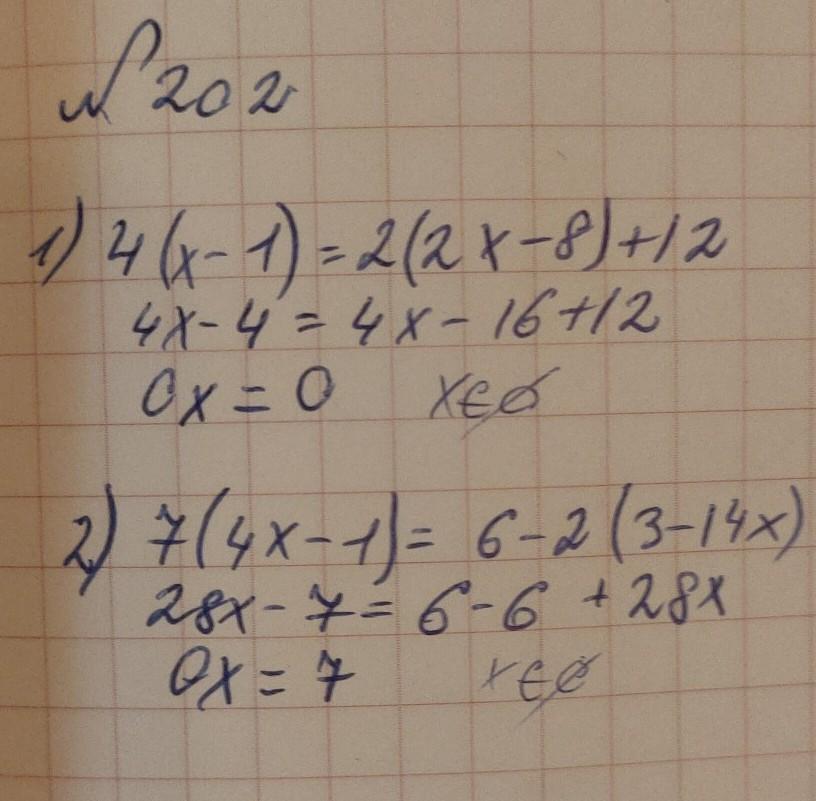 № 202
1) 4(x-1)=2(2x-8)+12
4x-4=4x-16+12
0x=0 x∈∅
2) 7(4x-1)=6-2(3-14x)
28x-7=6-6+28x
0x=7 x∈∅